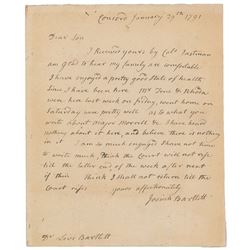 Concord January 29th 1791
Dear Son
I Received yours by Colo Eastman
am glad to hear my family are comfortable
I have enjoyed a pretty good State of health
Since I have been here Mr Jose & Rhoda
were here last week on friday, went home on
Saturday was pretty well as to what you
wrote about major Morrill & I have heard
nothing about it here, and believe there is nothing
in it I am so much engaged I have not time
to write much think the Court will not rise
till the latter end of the week after next
if then think I shall not return till the
Court rises yours affectionately
Josiah Bartlett
Levi Bartlett